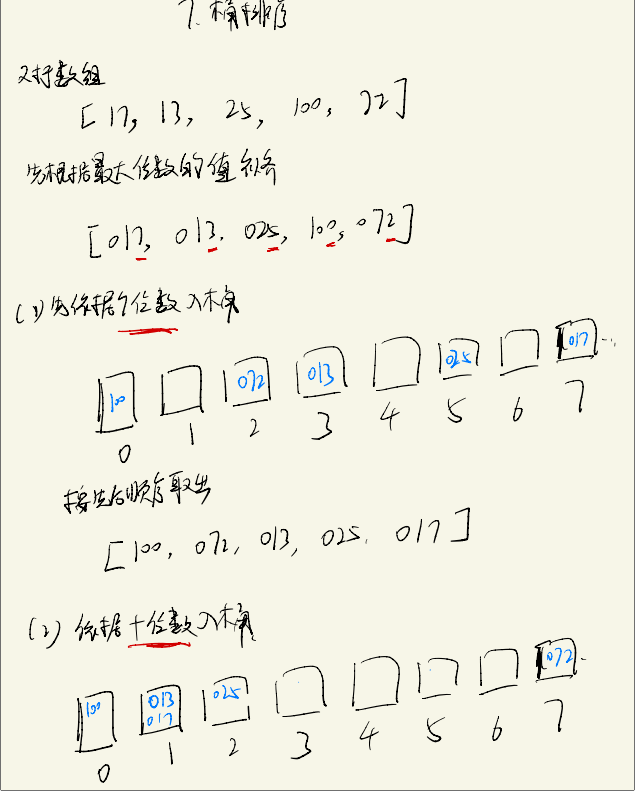 7. 桶排序
对于数组
[17, 13, 25, 100, 72]
先根据最大位数的值补齐
[017, 013, 025, 100, 072]
(1) 先依据个位数入桶
100 072 013 025 017 ...
0 1 2 3 4 5 6 7
按先后顺序取出
[100, 072, 013, 025, 017]
(2) 依据十位数入桶
100 013 025 072 ..
017
0 1 2 3 4 5 6 7